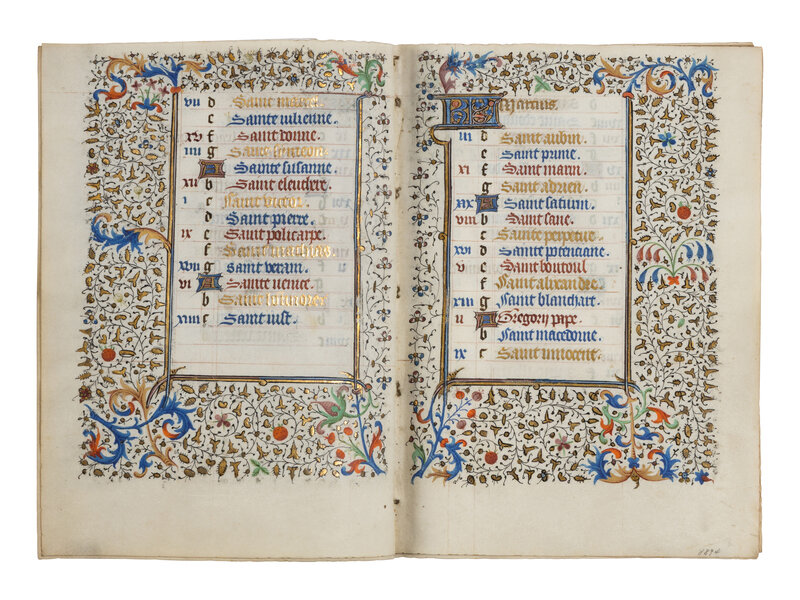 vii d Saint
e Sainte iulienne.
xv f Saint donne.
iiii g
A Sainte susanne
xii b Saint eleuthere.
i c Saint
d Saint pierre.
ix e Saint policarpe.
f Saint mathias
xvii g saint veram.
vi A Sainte venice.
b Saint
xiiii c Saint iust.
Marcius
iii d Saint aubin.
e Saint prime.
xi f Saint marin.
g Saint adrien.
xix A Saint saturin.
viii b Saint
c Sainte perpetue.
xvi d Sainte potenciane.
v e Saint boutoul
f Saint alixandre.
xiii g Saint blanchart.
ii A Gregorii pape.
b Saint macedoine.
ix c Saint innocent.
4894